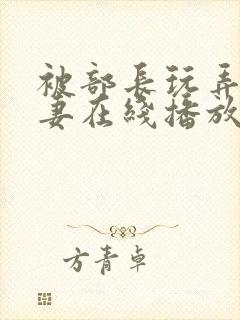 被部長玩弄
妻在綫播放
方青卓